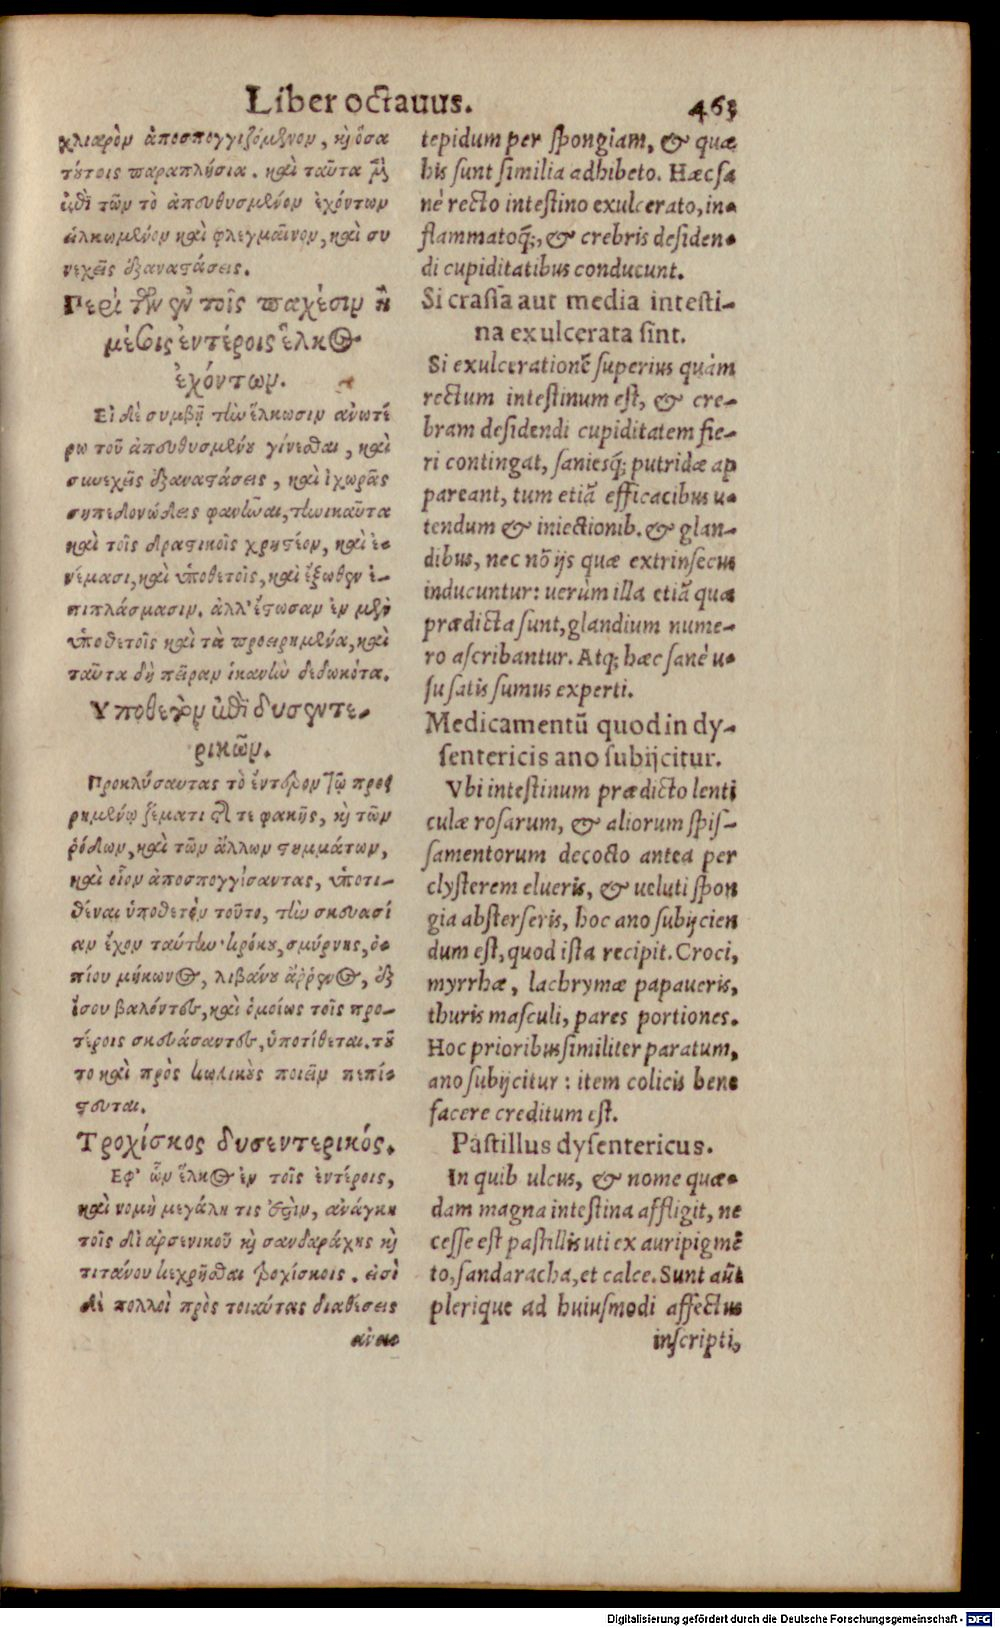 Liber octavus. 463
χλιαρὸν ἀποσπογγιζόμενον, κὶ ὅσα
τούτοις παραπλήσια. καὶ ταῦτα μὲν
ἐπὶ τῶν τὸ ἀπευθυσμένον ἐχόντων
εἱλκωμένον καὶ φλεγμαῖνον, καὶ συ
νεχεῖς ἐξαναστάσεις.
Περὶ τῶν ἐν τοῖς παχέσιν ἢ
μέσοις ἐντέροις ἕλκος
ἐχόντων.
Εἰ δὲ συμβῇ τὴν ἕλκωσιν ἀνωτέ
ρω τοῦ ἀπευθυσμένου γίνεσθαι, καὶ
συνεχεῖς ἐξαναστάσεις, καὶ ἰχωρᾶς
σηπεδονώδεις φανῆναι, τηνικαῦτα
καὶ τοῖς δραστικοῖς χρηστέον, καὶ ἐ-
νέμασι, καὶ ὑποθετοῖς, καὶ ἔξωθεν ἐ-
πιπλάσμασιν. ἀλλ' ἔστωσαν ἐν μὲν
ὑποθετοῖς καὶ τὰ προειρημένα, καὶ
ταῦτα δὴ πεῖραν ἱκανὴν δεδωκότα.
Υποθετὸν ἐπὶ δυσεντε-
ρικῶν.
Προκλύσαντας τὸ ἔντερον τῷ προει
ρημένῳ ζέματι διά τε φακῆς, κὶ τῶν
ῥόδων, καὶ τῶν ἄλλων στυμμάτων,
καὶ οἷον ἀποσπογγίσαντας, ὑποτι-
θέναι ὑποθετὸν τοῦτο, τὴν σκευασί
αν ἔχον ταύτην· κρόκου, σμύρνης, ὀ-
πίου μήκωνος, λιβάνου ἄῤῥενος, ἐξ
ἴσου βαλόντες, καὶ ὁμοίως τοῖς προ-
τέροις σκευάσαντες, ὑποτίθεται. τοῦ
το καὶ πρὸς κωλικοὺς ποιεῖν πεπί-
στευται.
Τροχίσκος δυσεντερικός.
Εφ' ὧν ἕλκος ἐν τοῖς ἐντέροις,
καὶ νομὴ μεγάλη τις ἐστὶν, ἀνάγκη
τοῖς δι' ἀρσενικοῦ κὶ σανδαράχης κὶ
τιτάνου κεχρῆσθαι τροχίσκοις. εἰσὶ
δὲ πολλοὶ πρὸς τοιαύτας διαθέσεις
ἀνα-
tepidum per spongiam, & quæ
his sunt similia adhibeto. Hæc sa
nè recto intestino exulcerato, in-
flammatoq́;, & crebris desiden-
di cupiditatibus conducunt.
Si crassa aut media intesti-
na exulcerata sint.
Si exulcerationẽ superius quàm
rectum intestinum est, & cre-
bram desidendi cupiditatem fie-
ri contingat, saniesq́; putridæ ap
pareant, tum etiã efficacibus u-
tendum & iniectionib. & glan-
dibus, nec nõ ijs quæ extrinsecus
inducuntur: uerùm illa etiã quæ
prædicta sunt, glandium nume-
ro ascribantur. Atq; hæc sanè u-
su satis sumus experti.
Medicamentũ quod in dy-
sentericis ano subijcitur.
Vbi intestinum prædicto lenti
culæ rosarum, & aliorum spis-
samentorum decocto antea per
clysterem elueris, & ueluti spon
gia absterseris, hoc ano subijcien
dum est, quod ista recipit. Croci,
myrrhæ, lachrymæ papaueris,
thuris masculi, pares portiones.
Hoc prioribus similiter paratum,
ano subijcitur: item colicis bene
facere creditum est.
Pastillus dysentericus.
In quib ulcus, & nome quæ-
dam magna intestina affligit, ne
cesse est pastillis uti ex auripigmẽ
to, sandaracha, et calce. Sunt aũt
plerique ad huiusmodi affectus
inscripti,
Digitalisierung gefördert durch die Deutsche Forschungsgemeinschaft - DFG